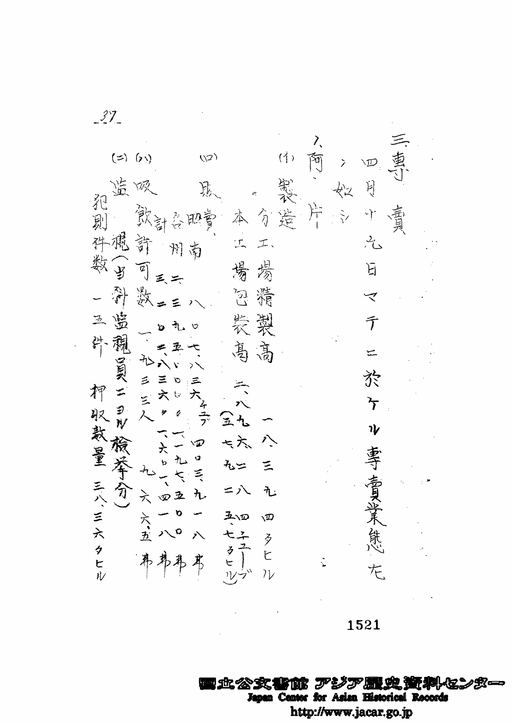 37
三、專賣
四月十九日マテニ於ケル專賣業態左
ノ如シ
1、阿片
(イ)製造
分工場精製高 一八、三九四タヒル
本工場包裝高 二、八九六、二八四チューブ
(五七、九二五、七タヒル)
(ロ)販賣
昭南 八〇七、八三六チューブ 四〇三、九一八弗
各州 二、三九五、〇〇〇〃 一、一九七、五〇〇弗
計 三、二〇二、八三六〃 一、六〇一、四一八弗
(ハ)吸飲許可數 一、九三三人 九六六、五弗
(ニ)監視(当科監視員ニヨル檢挙分)
犯則件数 一五件 押収数量 三八、三六タヒル
1521
国立公文書館 アジア歴史資料センター
Japan Center for Asian Historical Records
http://www.jacar.go.jp